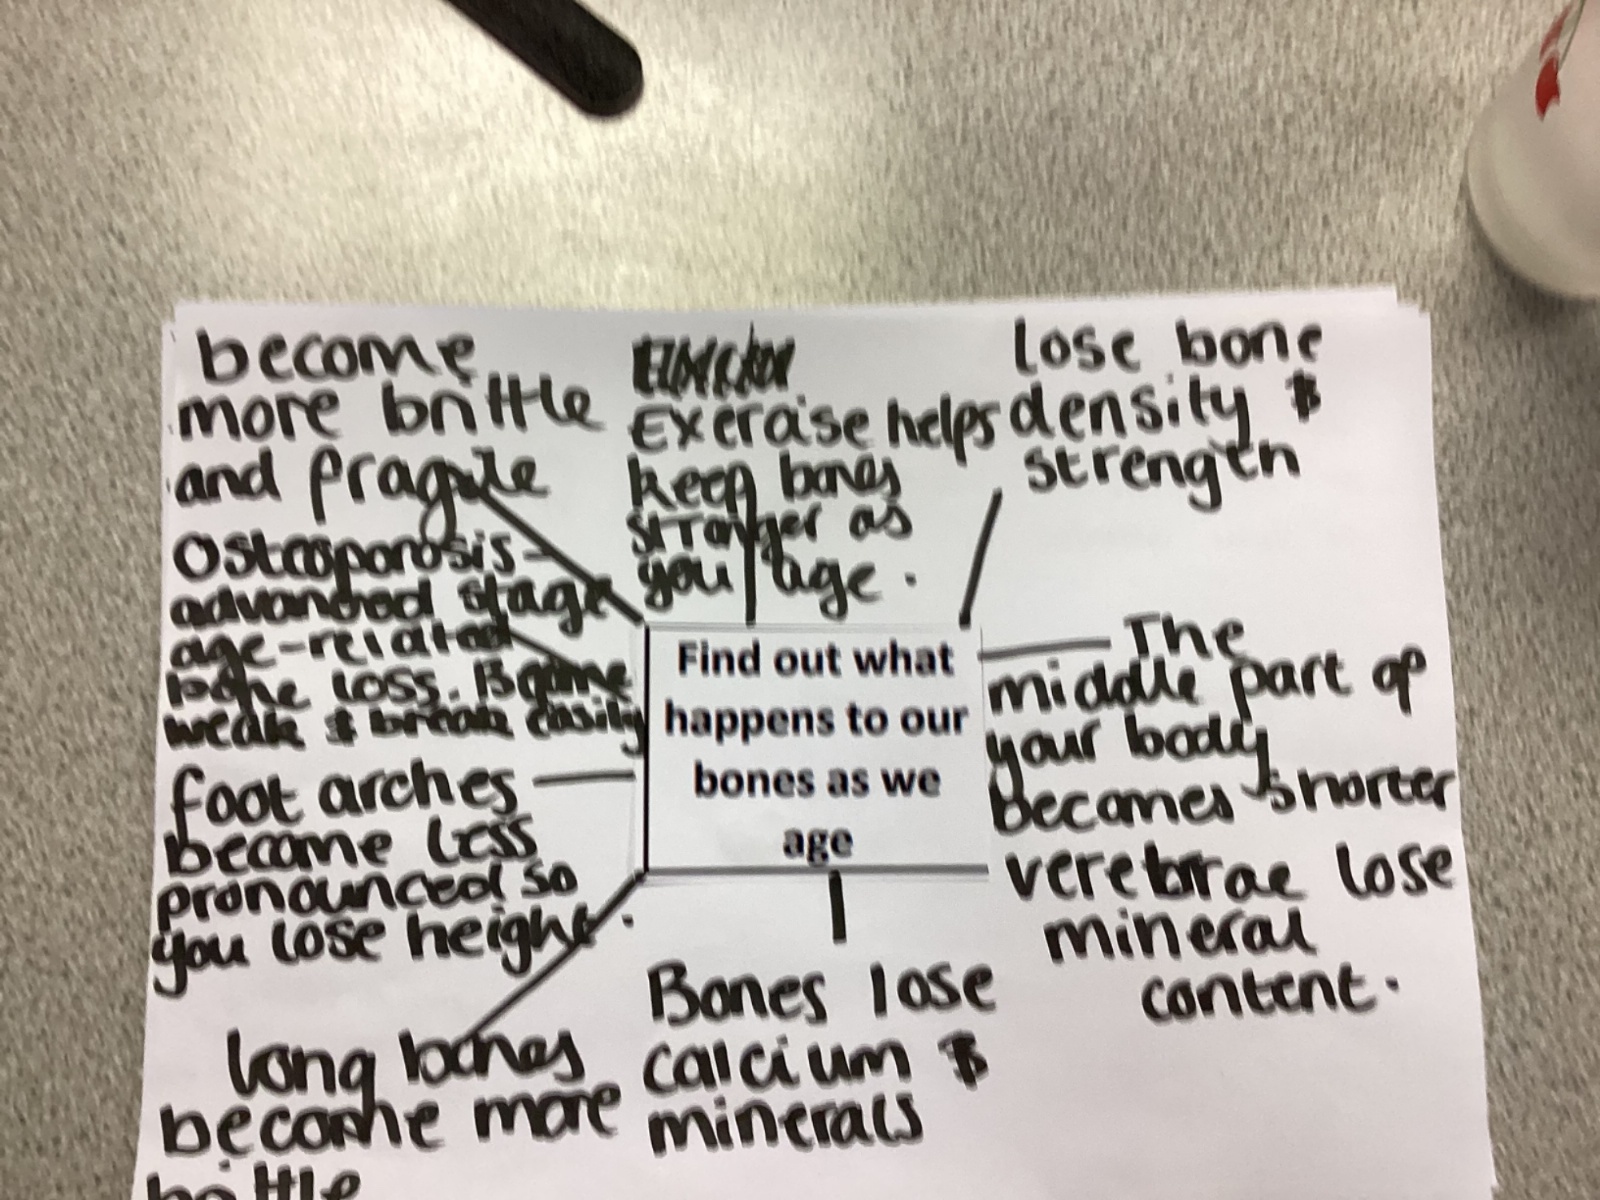 become
more brittle
and fragile
Exercise helps
keep bones
stronger as
you age.
lose bone
density &
strength
Osteoporosis -
advanced stage
age-related
bone loss. Become
weak & break easily
Find out what
happens to our
bones as we
age
The
middle part of
your body
becomes shorter
verebrae lose
mineral
content.
foot arches
become less
pronounced so
you lose height.
long bones
become more
brittle
Bones lose
calcium &
minerals